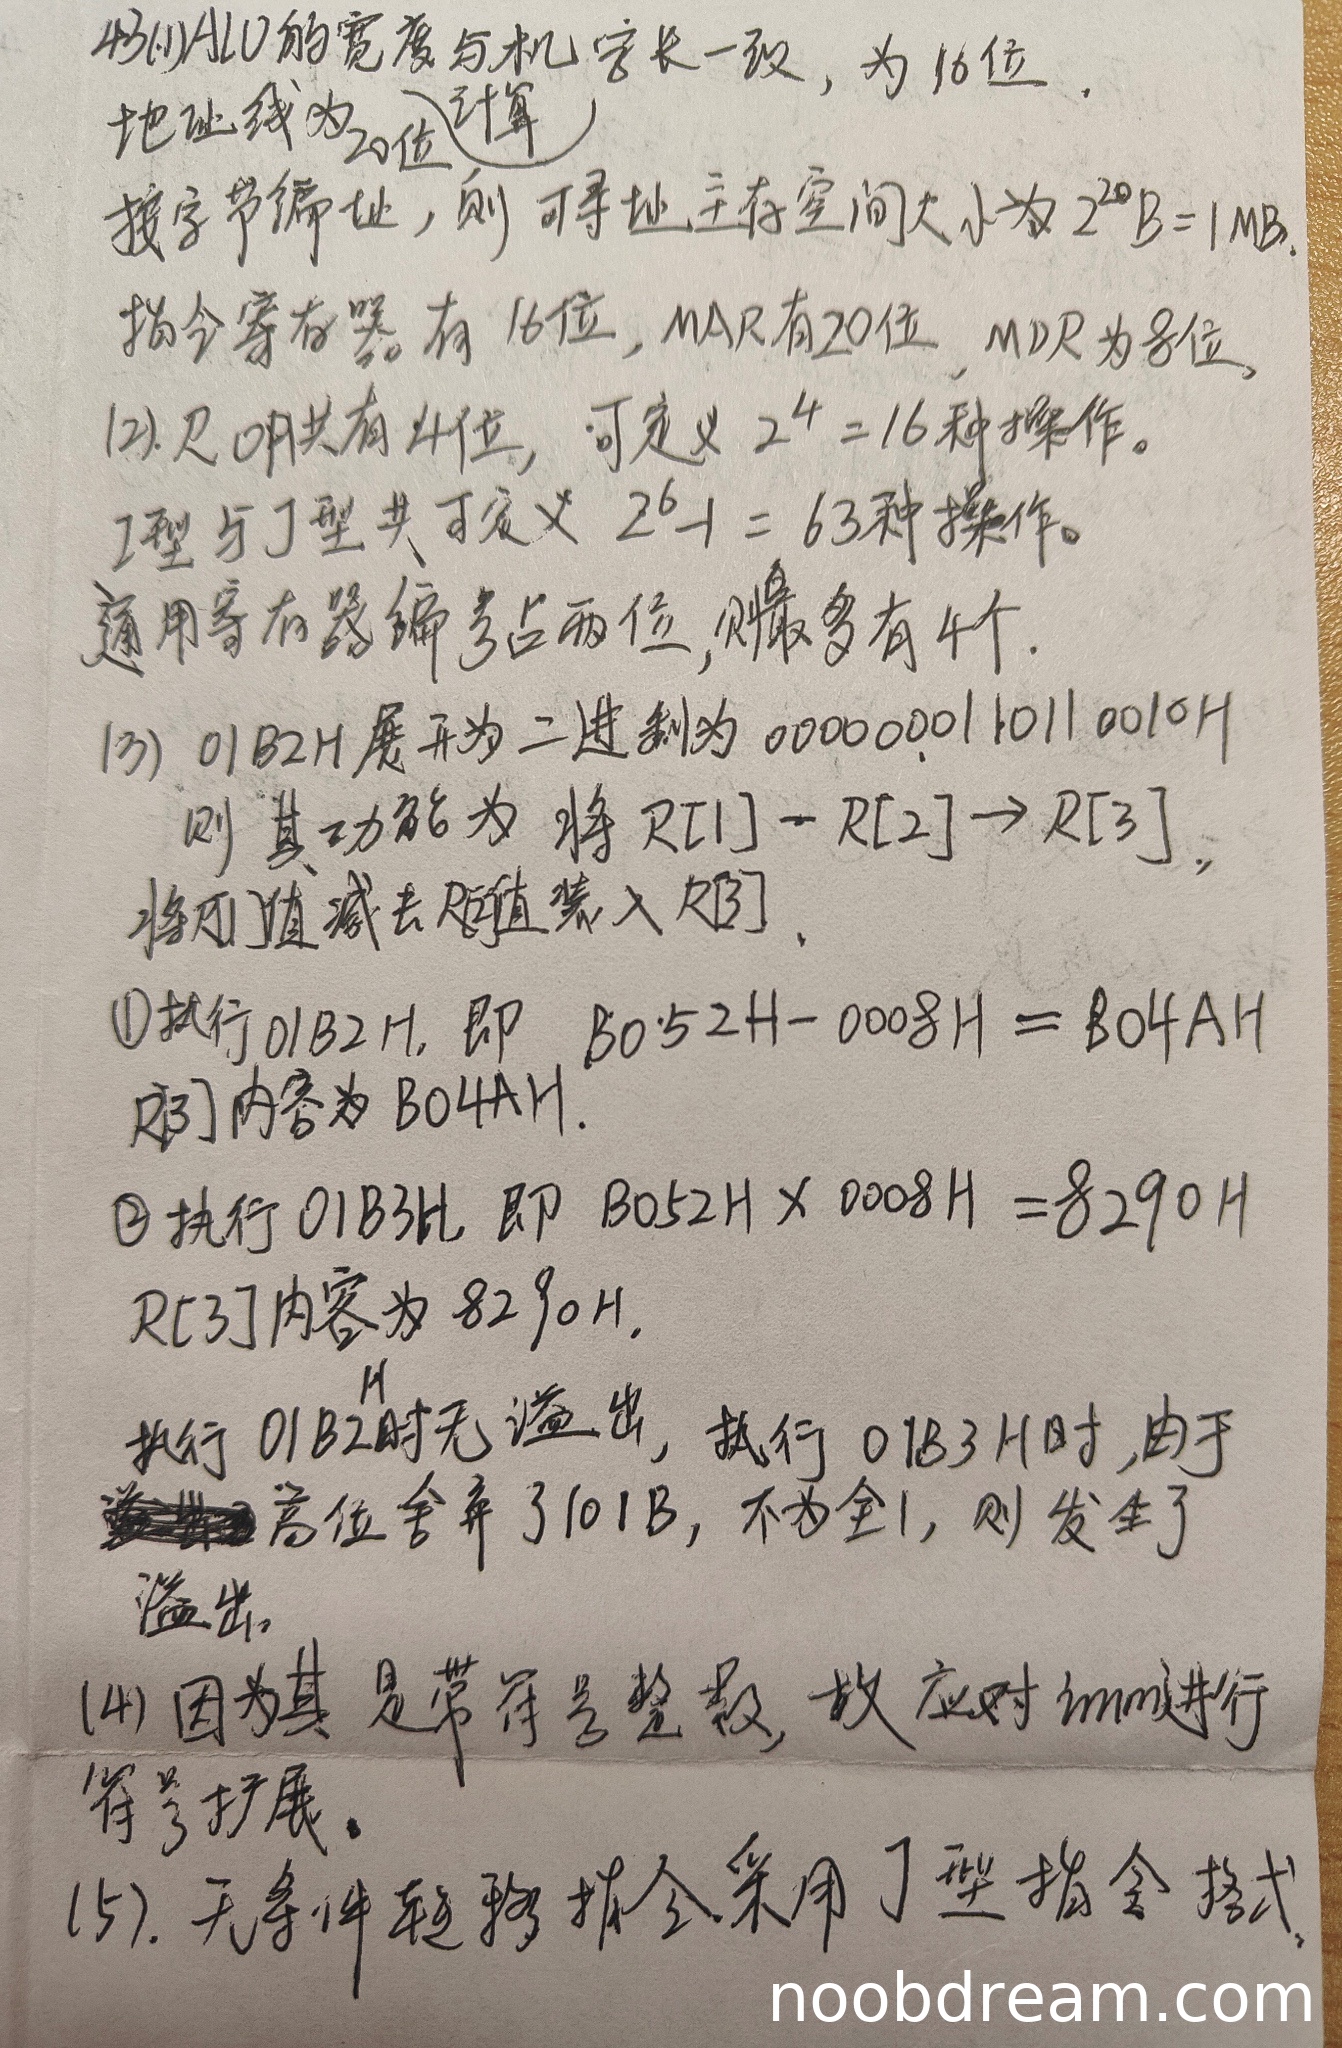 43(1)ALU的宽度与机字长一致，为16位．
地址线为20位 计算
按字节编址，则可寻址主存空间大小为2^20B=1MB.
指令寄存器有16位，MAR有20位，MDR为8位。
(2).R OP共有4位，可定义2^4=16种操作。
I型与J型共可定义2^6-1=63种操作。
通用寄存器编号占两位,则最多有4个.
(3) 01B2H展开为二进制为0000000110110010H
则其功能为 将R[1]-R[2]→R[3]，
将R[1]值减去R[2]值装入R[3].
①执行01B2H,即 B052H-0008H=B04AH
R[3]内容为B04AH.
②执行01B3H,即 B052H×0008H=8290H
R[3]内容为8290H.
执行01B2H时无溢出，执行01B3H时,由于
高位舍弃了101B，不为全1，则发生了
溢出。
(4)因为其是带符号整数，故应对imm进行
符号扩展。
(5).无条件转移指令采用J型指令格式.
noobdream.com